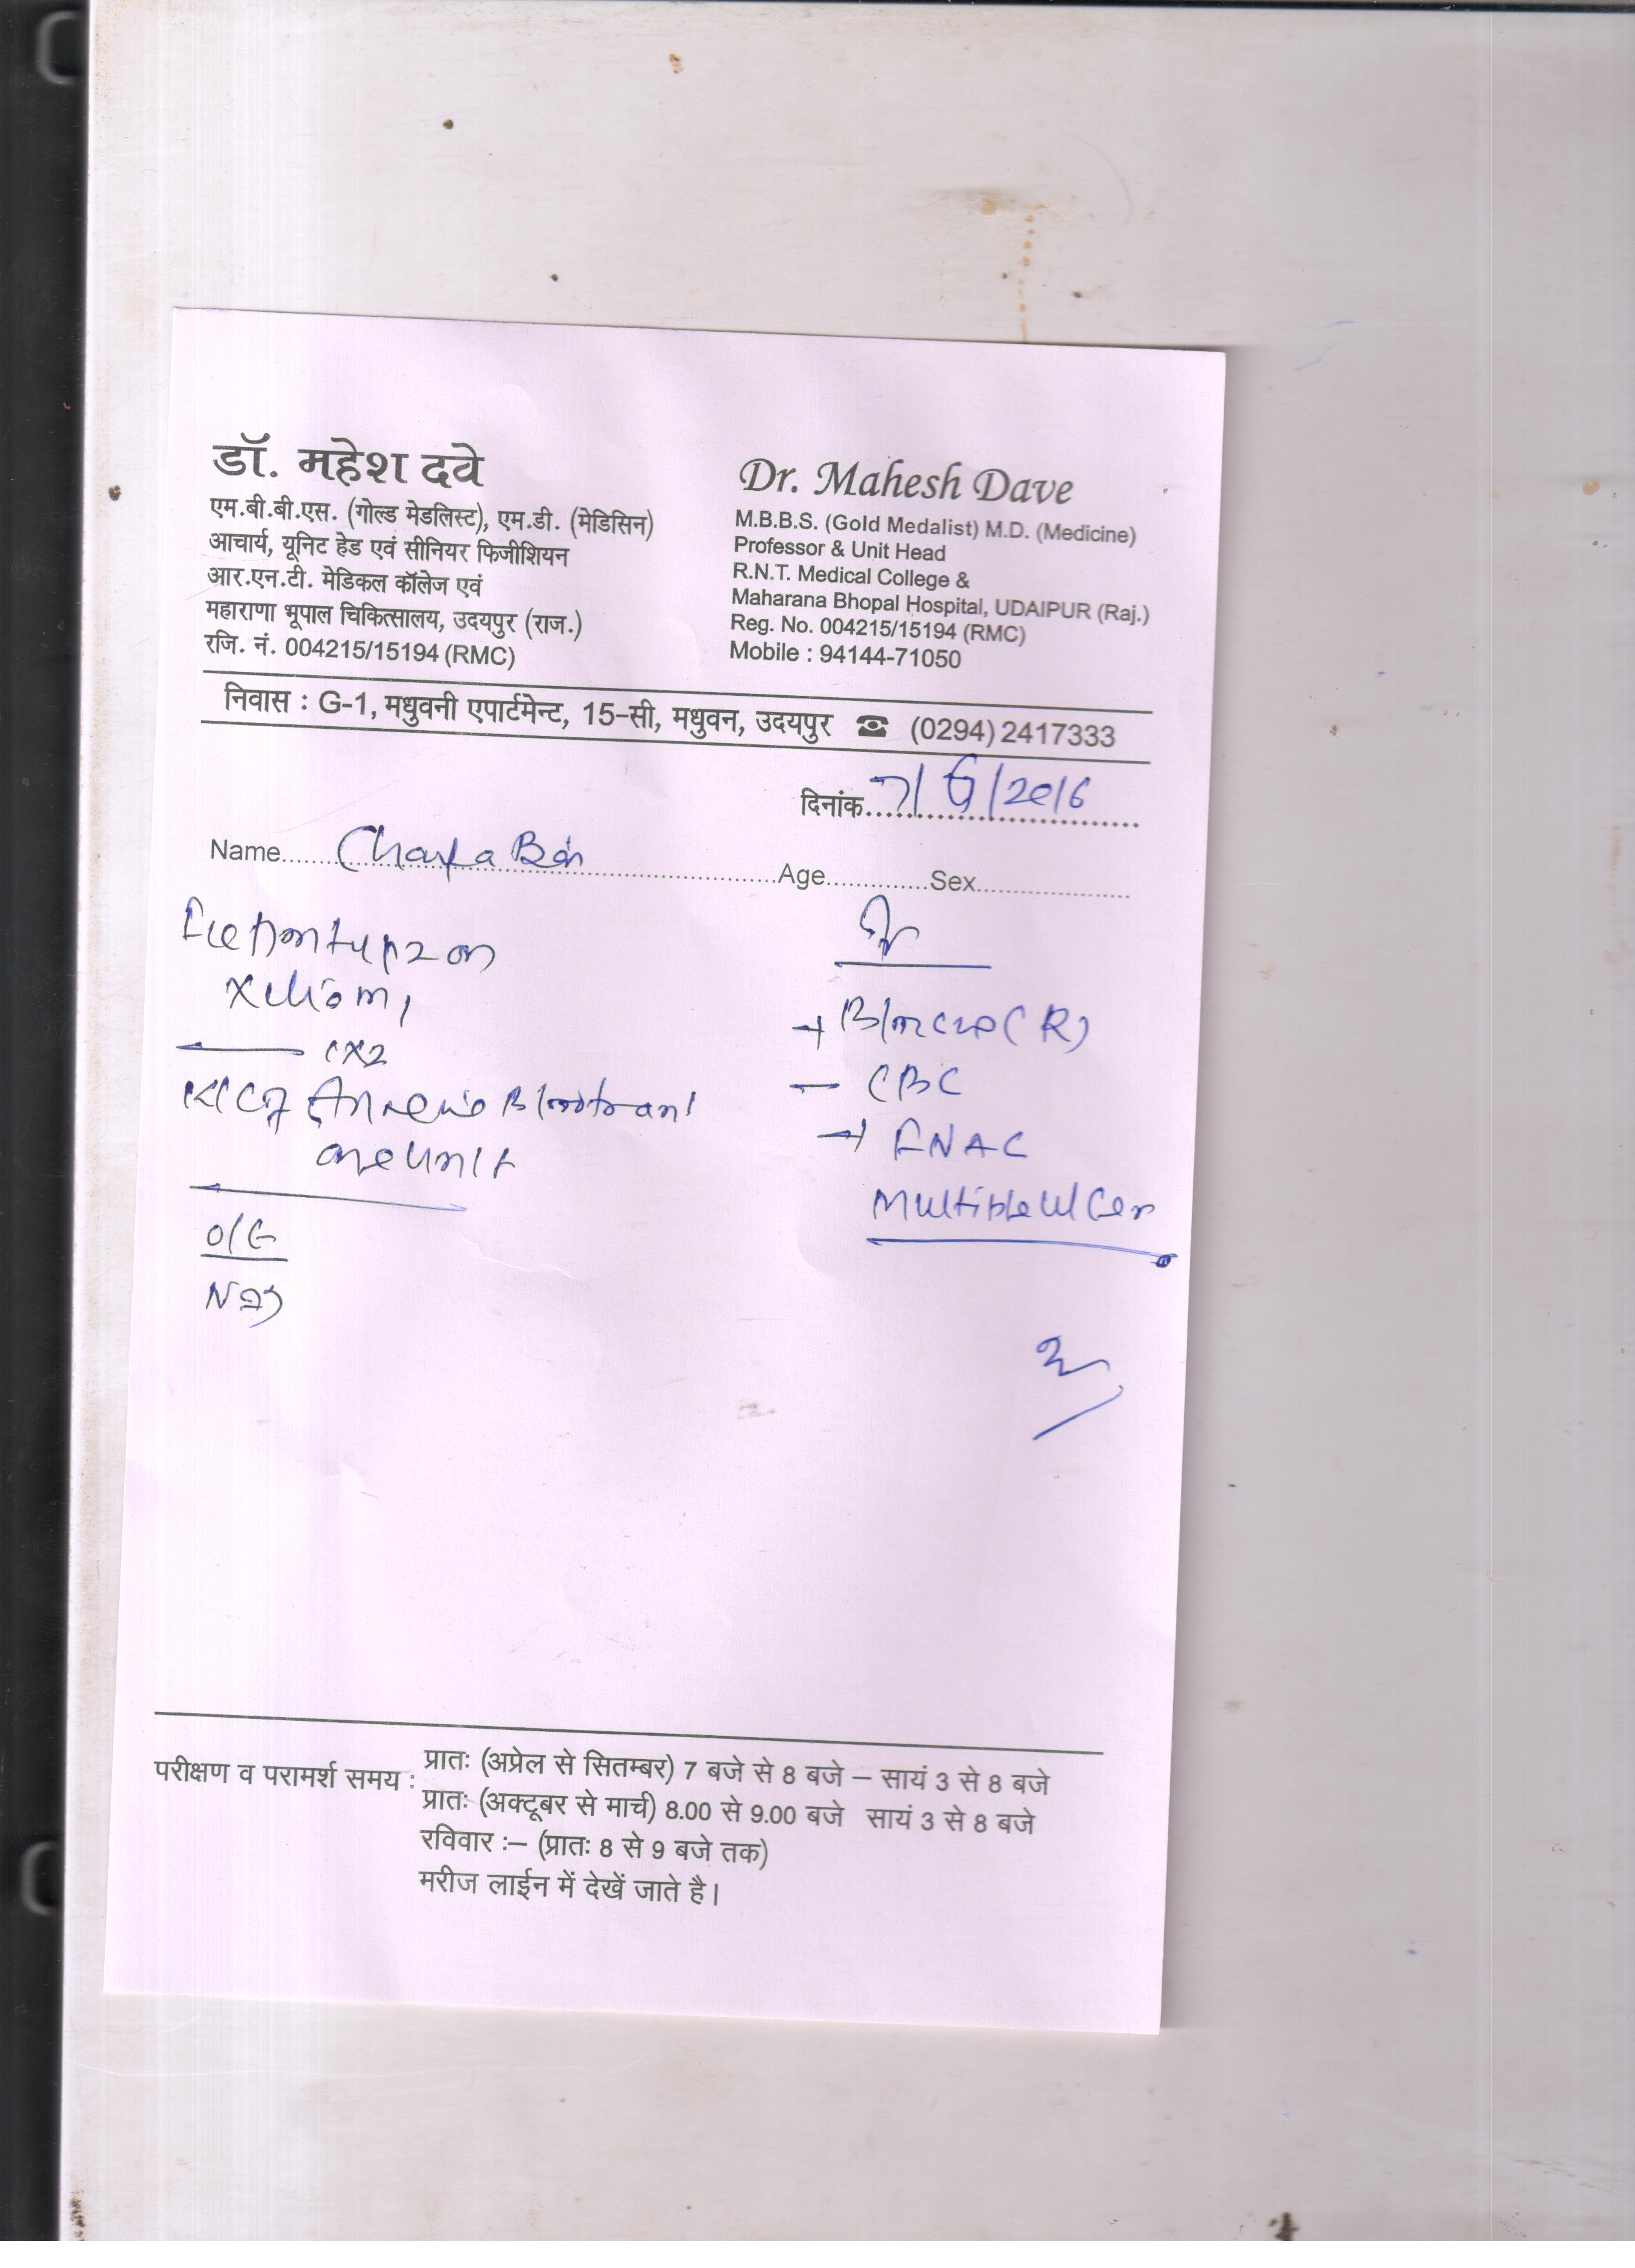 डॉ. महेश दवे
एम.बी.बी.एस. (गोल्ड मेडलिस्ट), एम.डी. (मेडिसिन)
आचार्य, यूनिट हेड एवं सीनियर फिजीशियन
आर.एन.टी. मेडिकल कॉलेज एवं
महाराणा भूपाल चिकित्सालय, उदयपुर (राज.)
रजि. नं. 004215/15194 (RMC)
Dr. Mahesh Dave
M.B.B.S. (Gold Medalist) M.D. (Medicine)
Professor & Unit Head
R.N.T. Medical College &
Maharana Bhopal Hospital, UDAIPUR (Raj.)
Reg. No. 004215/15194 (RMC)
Mobile : 94144-71050
निवास : G-1, मधुवनी एपार्टमेन्ट, 15-सी, मधुवन, उदयपुर ☎ (0294) 2417333
दिनांक
Name Age Sex
one unit
CBC
FNAC
Multiple
परीक्षण व परामर्श समय : प्रातः (अप्रेल से सितम्बर) 7 बजे से 8 बजे – सायं 3 से 8 बजे
प्रातः (अक्टूबर से मार्च) 8.00 से 9.00 बजे सायं 3 से 8 बजे
रविवार :– (प्रातः 8 से 9 बजे तक)
मरीज लाईन में देखें जाते है।